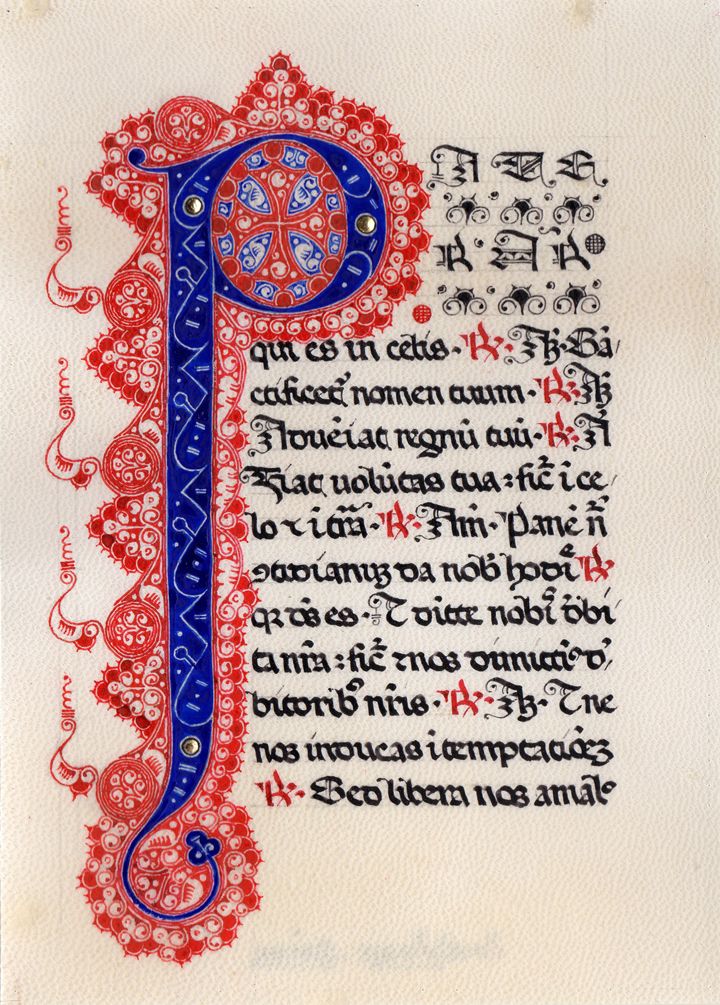 P A T E
R · A · R
qui es in celis · R · Am · Sā
ctificet' nomen tuum · R · Am
Aduēiat regnū tuū · R · A
Fiat uolūtas tua : sic̄ i ce
lo ⁊ i tr̄a · R · Am · Panē n̄
ꝯtidianuꝫ da nob̄ hodiē R
qꝛ ds̄ es · ⁊ ditte nobī dēbi
ta nr̄a : sic̄ ⁊ nos dimitti' d'
bitorib' nr̄is · R · Am · ⁊ ne
nos inducas i temptatiōeꝫ
R · Sed libera nos a mal°